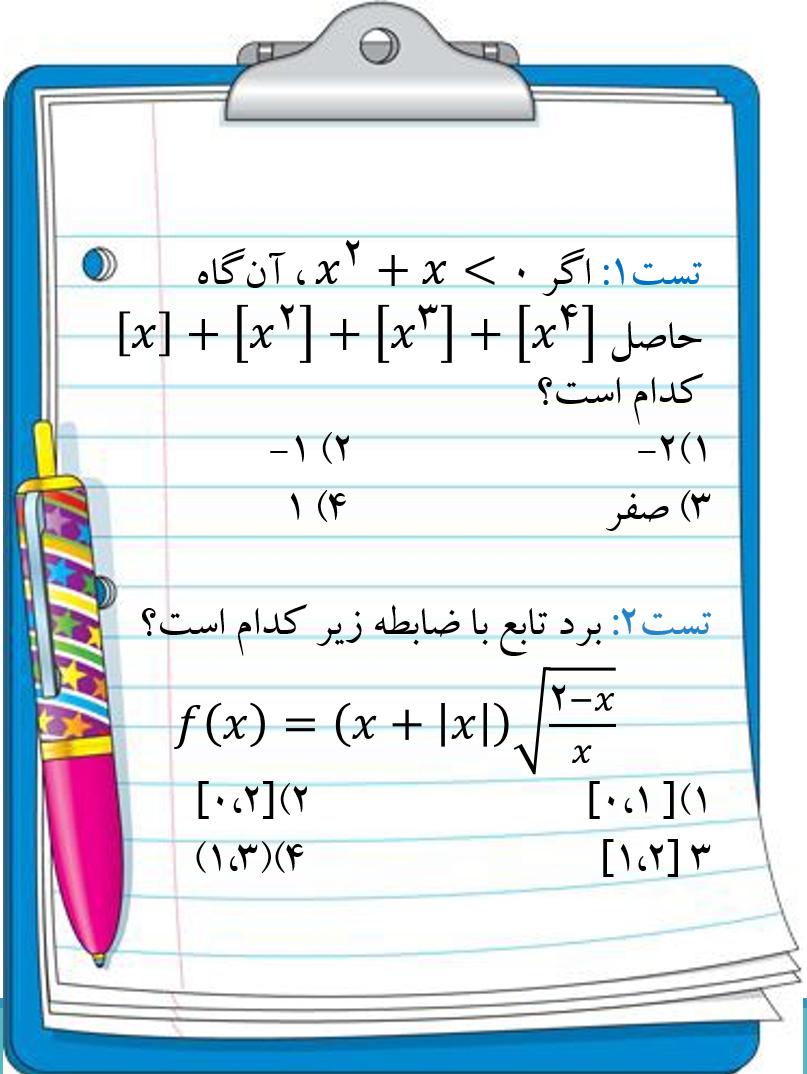 تست۱: اگر x^۲ + x < ۰ ، آن‌گاه
حاصل [x] + [x^۲] + [x^۳] + [x^۴]
کدام است؟
۱)۲− ۲) ۱−
۳) صفر ۴) ۱
تست۲: برد تابع با ضابطه زیر کدام است؟
f(x) = (x + |x|)√((۲−x)/x)
۱)[۰،۱ ] ۲)[۰،۲]
۳ [۱،۲] ۴)(۱،۳)